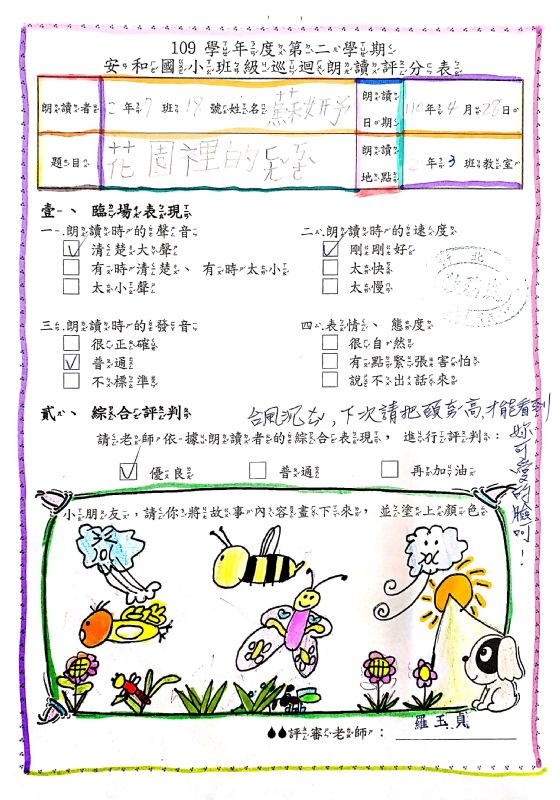 109 學年度第二學期
安和國小班級巡迴朗讀評分表
朗讀者 2 年 7 班 19 號姓名 蘇妤予 朗讀日期 110 年 4 月 28 日
題目 花園裡的 朗讀地點 年 3 班教室
壹、臨場表現
一、朗讀時的聲音
清楚大聲
有時清楚、有時太小
太小聲
二、朗讀時的速度
剛剛好
太快
太慢
三、朗讀時的發音
很正確
普通
不標準
四、表情、態度
很自然
有點緊張害怕
說不出話來
貳、綜合評判
台風沉穩,下次請把頭抬高,才能看到
妳可愛的臉呵!
請老師依據朗讀者的綜合表現,進行評判:
優良 普通 再加油
小朋友,請你將故事內容畫下來,並塗上顏色
評審老師:羅玉貞